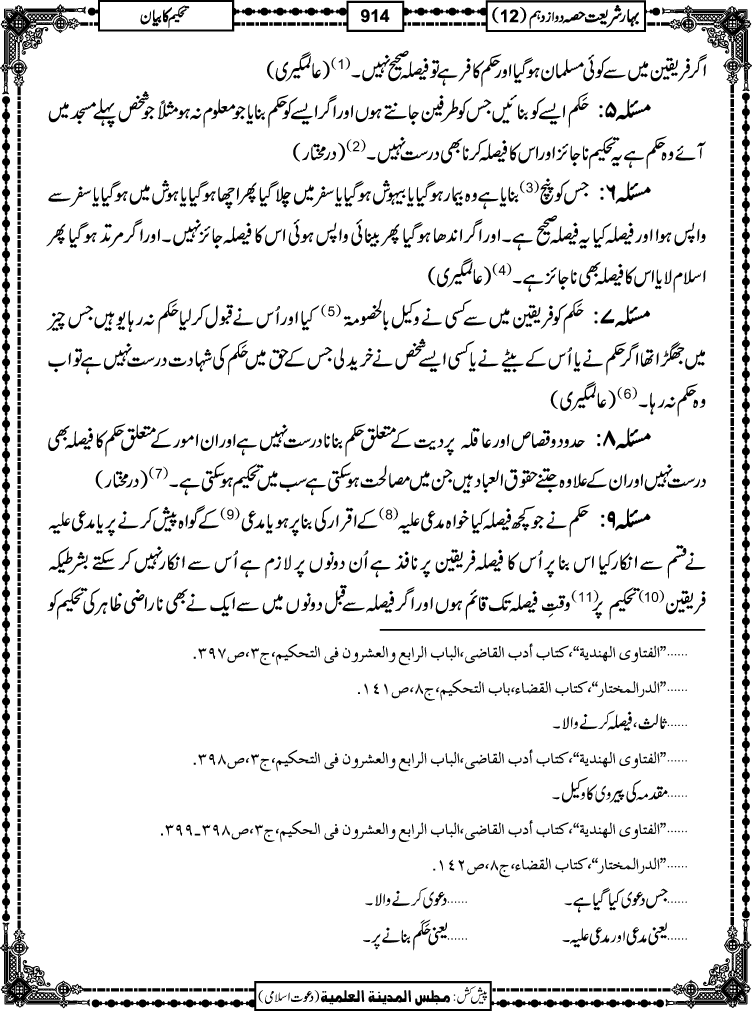 بہار شریعت حصہ دوازدہم (12)
914
تحکیم کا بیان
اگر فریقین میں سے کوئی مسلمان ہوگیا اور حکم کافر ہے تو فیصلہ صحیح نہیں۔(1) (عالمگیری)
مسئلہ ۵: حَکَم ایسے کو بنائیں جس کو طرفین جانتے ہوں اور اگر ایسے کو حکم بنایا جو معلوم نہ ہو مثلاً جو شخص پہلے مسجد میں
آئے وہ حکم ہے یہ تحکیم ناجائز اور اس کا فیصلہ کرنا بھی درست نہیں۔(2) (درمختار)
مسئلہ ۶: جس کو پنچ(3) بنایا ہے وہ بیمار ہوگیا یا بیہوش ہوگیا یا سفر میں چلا گیا پھر اچھا ہوگیا یا ہوش میں ہوگیا یا سفر سے
واپس ہوا اور فیصلہ کیا یہ فیصلہ صحیح ہے۔ اور اگر اندھا ہوگیا پھر بینائی واپس ہوئی اس کا فیصلہ جائز نہیں۔ اور اگر مرتد ہوگیا پھر
اسلام لایا اس کا فیصلہ بھی ناجائز ہے۔(4) (عالمگیری)
مسئلہ ۷: حَکَم کو فریقین میں سے کسی نے وکیل بالخصومۃ (5) کیا اور اُس نے قبول کرلیا حَکَم نہ رہا یوہیں جس چیز
میں جھگڑا تھا اگر حکم نے یا اُس کے بیٹے نے یا کسی ایسے شخص نے خریدلی جس کے حق میں حَکَم کی شہادت درست نہیں ہے تو اب
وہ حکم نہ رہا۔(6) (عالمگیری)
مسئلہ ۸: حدود و قصاص اور عاقلہ پر دیت کے متعلق حکم بنانا درست نہیں ہے اور ان امور کے متعلق حکم کا فیصلہ بھی
درست نہیں اور ان کے علاوہ جتنے حقوق العباد ہیں جن میں مصالحت ہوسکتی ہے سب میں تحکیم ہوسکتی ہے۔(7) (درمختار)
مسئلہ ۹: حکم نے جو کچھ فیصلہ کیا خواہ مدعی علیہ(8) کے اقرار کی بنا پر ہو یا مدعی(9) کے گواہ پیش کرنے پر یا مدعی علیہ
نے قسم سے انکار کیا اس بنا پر اُس کا فیصلہ فریقین پر نافذ ہے اُن دونوں پر لازم ہے اُس سے انکار نہیں کر سکتے بشرطیکہ
فریقین (10) تحکیم پر(11) وقتِ فیصلہ تک قائم ہوں اور اگر فیصلہ سے قبل دونوں میں سے ایک نے بھی ناراضی ظاہر کی تحکیم کو
......”الفتاوی الھندیة“، کتاب أدب القاضی، الباب الرابع والعشرون فی التحکیم، ج۳، ص۳۹۷.
......”الدرالمختار“، کتاب القضاء، باب التحکیم، ج۸، ص۱٤۱.
......ثالث، فیصلہ کرنے والا۔
......”الفتاوی الھندیة“، کتاب أدب القاضی، الباب الرابع والعشرون فی التحکیم، ج۳، ص۳۹۸.
......مقدمہ کی پیروی کا وکیل۔
......”الفتاوی الھندیة“، کتاب أدب القاضی، الباب الرابع والعشرون فی الحکیم، ج۳، ص۳۹۸ـ۳۹۹.
......”الدرالمختار“، کتاب القضاء، ج۸، ص۱٤۲.
......جس دعوی کیا گیا ہے۔ ......دعوی کرنے والا۔
......یعنی مدعی اور مدعی علیہ۔ ......یعنی حَکَم بنانے پر۔
پیش کش: مجلس المدینة العلمیة (دعوت اسلامی)